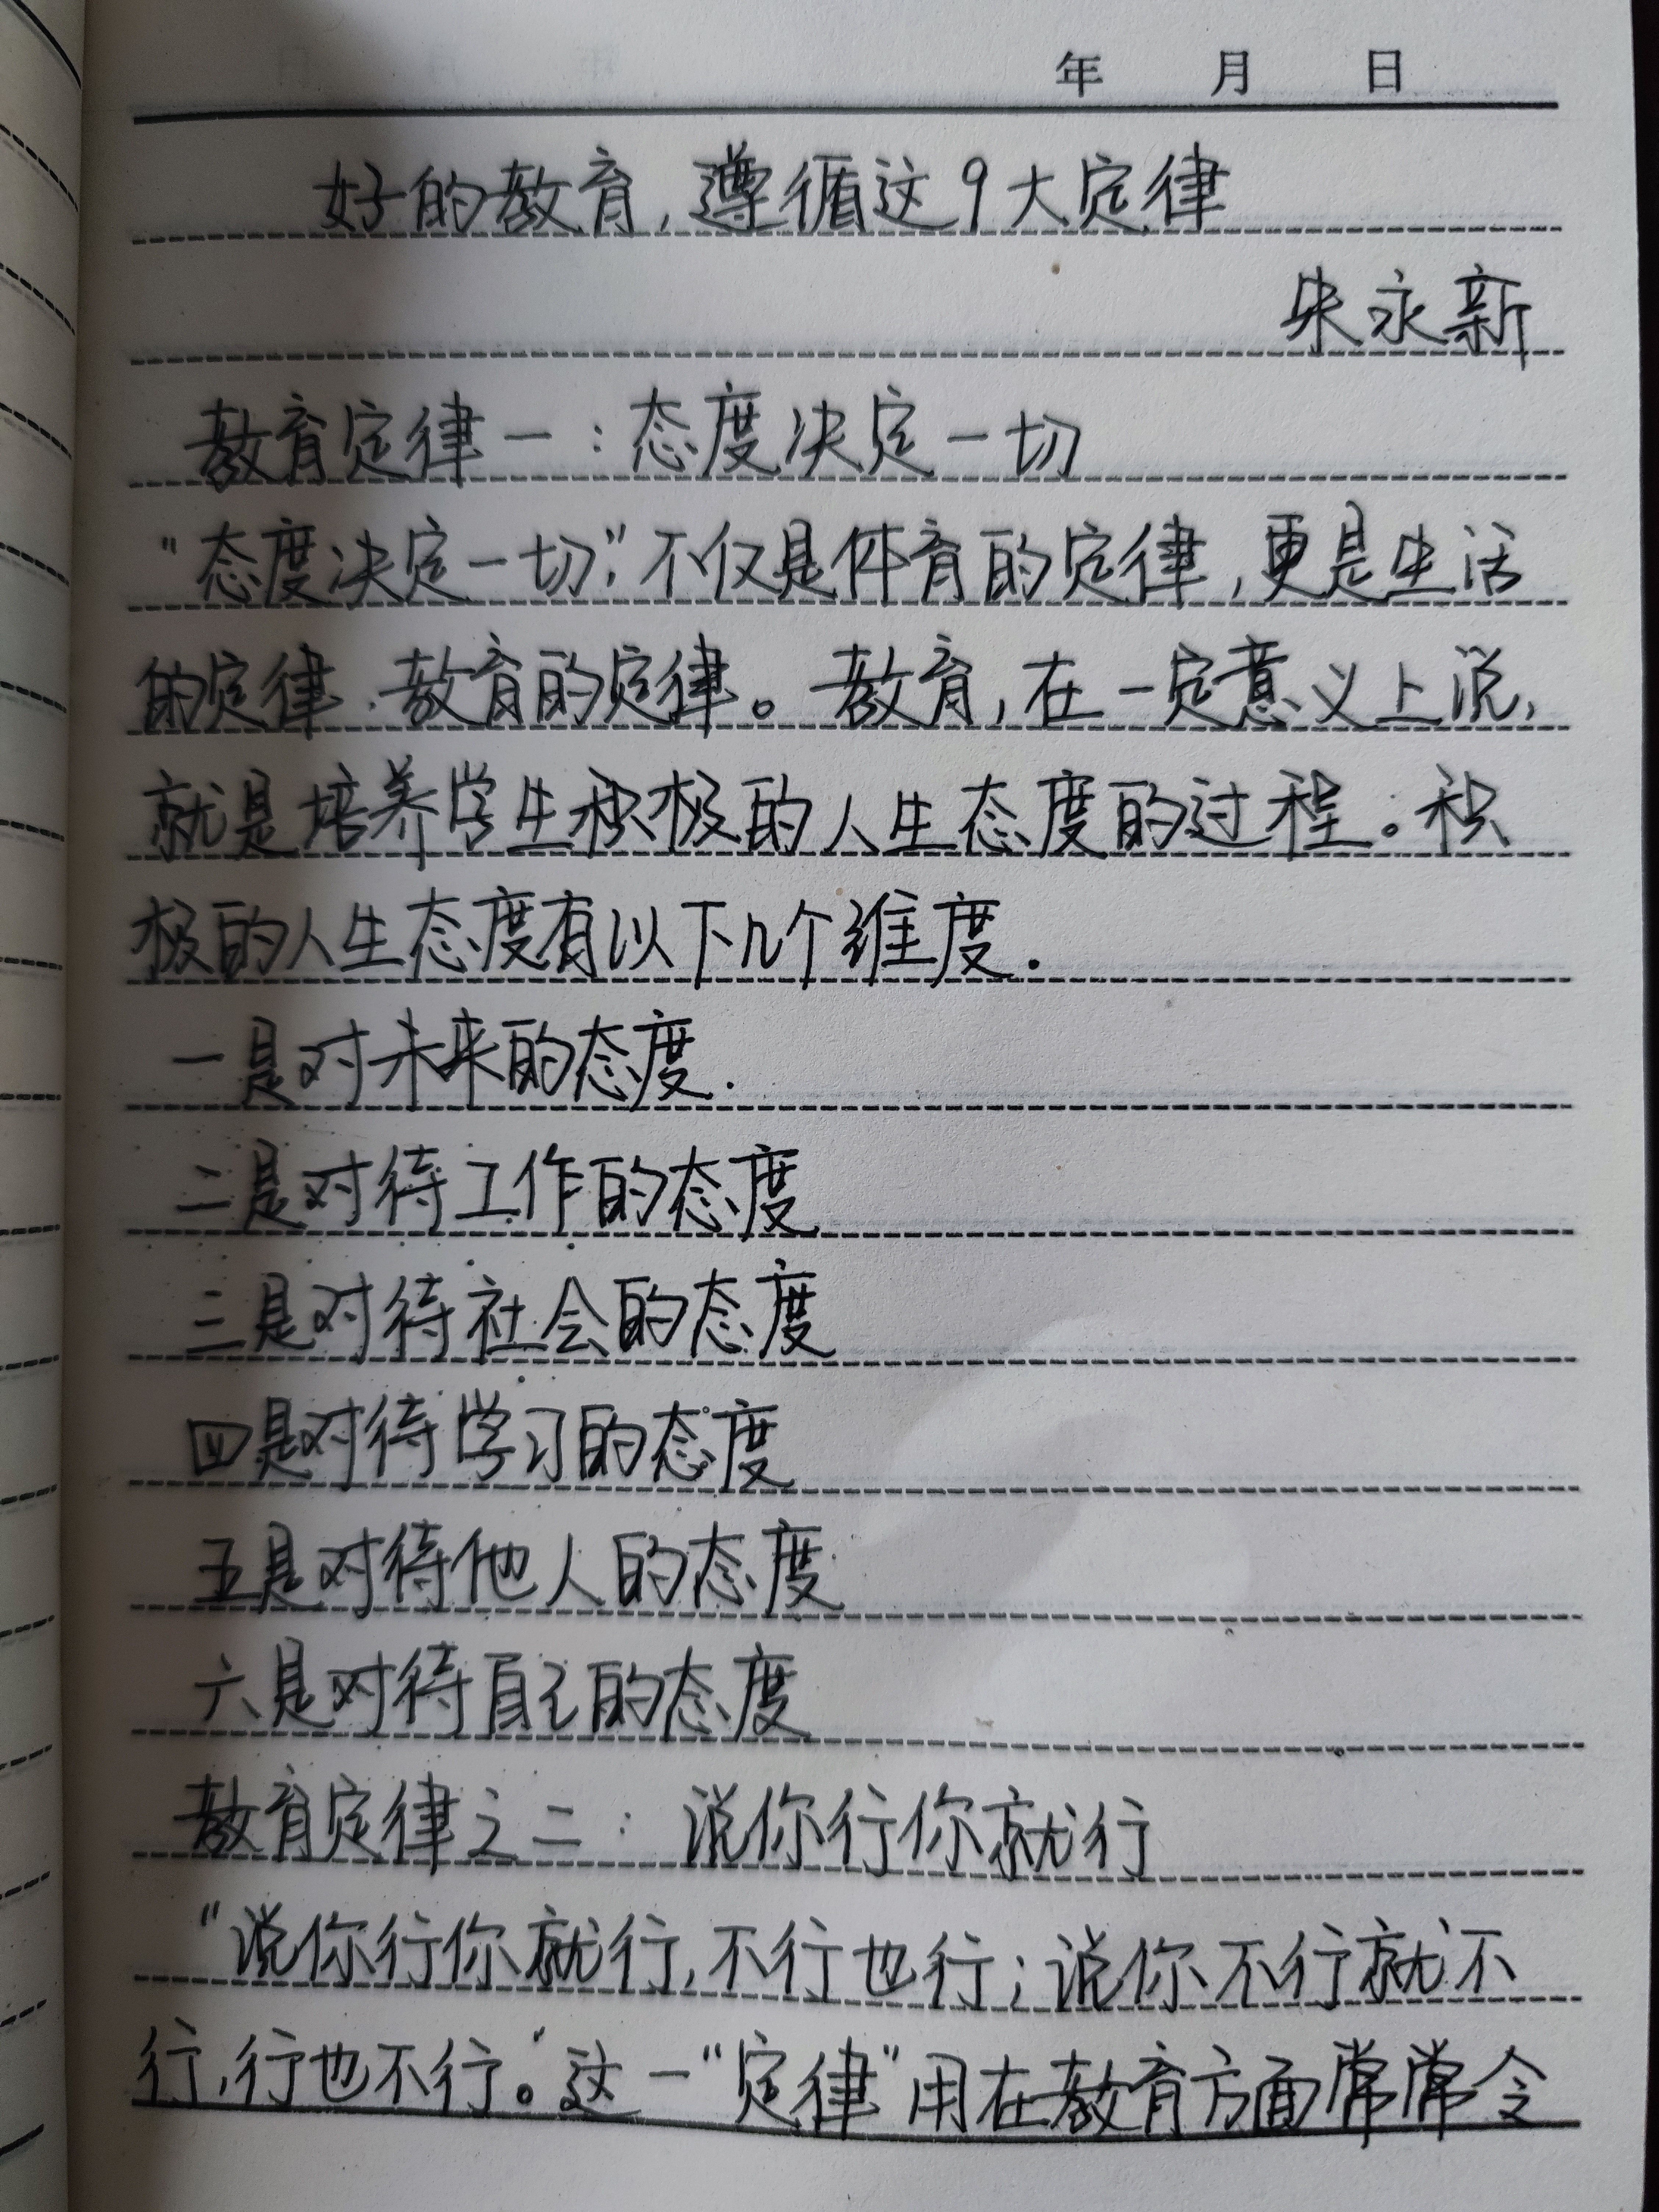 年 月 日
好的教育,遵循这9大定律
朱永新
教育定律一:态度决定一切
“态度决定一切”,不仅是体育的定律,更是生活
的定律、教育的定律。教育,在一定意义上说,
就是培养学生积极的人生态度的过程。积
极的人生态度有以下几个维度.
一是对未来的态度.
二是对待工作的态度
三是对待社会的态度
四是对待学习的态度
五是对待他人的态度
六是对待自己的态度
教育定律之二:说你行你就行
“说你行你就行,不行也行;说你不行就不
行,行也不行。”这一“定律”用在教育方面常常令